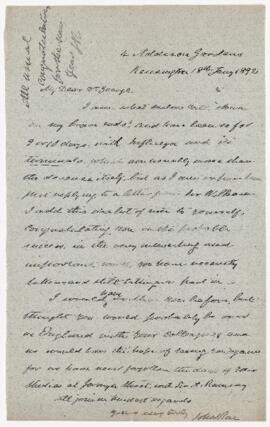 4 Addison Gardens
Kensington 18th Jany 1892
All usual
congratulations
for the new
year
My Dear Dr George
I am what
on my beam ends and have been so for
9 or 10 days, with influenza and its
which are usually more than
the disease itself, but as I
just replying to a letter from Sir W.
I add this one bit of note to yourself,
congratulating you on the probable
success, in the very interesting and
important work, you have recently
taken and still taking a part in
I would have written you before, but
thought you would probably be over
in England with your colleagues and
we would have the pleasure of seeing you again
for we have not forgotten the days of your
studies at Jermyn Street, and Sir A. Ramsay
All join in kindest regards
yours very truly
John Rae